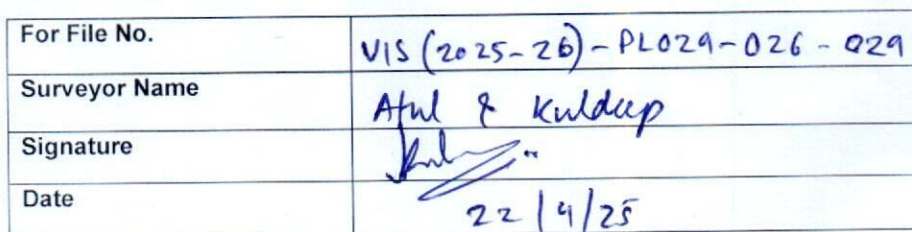 For File No. VIS (2025-26) - PL029-026-029
Surveyor Name Atul & Kuldeep
Signature
Date 22/4/25